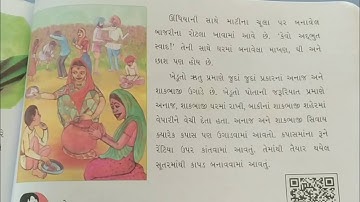 ઊંધિયાની સાથે માટીના ચૂલા પર બનાવેલ
બાજરીના રોટલા ખાવામાં આવે છે. 'કેવો અદ્‌ભુત
સ્વાદ!' તેની સાથે ઘરમાં બનાવેલા માખણ, ઘી અને
છાશ પણ હોય છે.
ખેડૂતો ઋતુ પ્રમાણે જુદાં જુદાં પ્રકારનાં અનાજ અને
શાકભાજી ઉગાડે છે. ખેડૂતો પોતાની જરૂરિયાત પ્રમાણે
અનાજ, શાકભાજી ઘરમાં રાખી, બાકીનાં શાકભાજી શહેરમાં
વેપારીને વેચી દેતા હતા. અનાજ અને શાકભાજી સિવાય
ક્યારેક કપાસ પણ ઉગાડવામાં આવતો. કપાસમાંના રૂને
રેંટિયા ઉપર કાંતવામાં આવતું. તેમાંથી તૈયાર થયેલ
સૂતરમાંથી કાપડ બનાવવામાં આવતું.